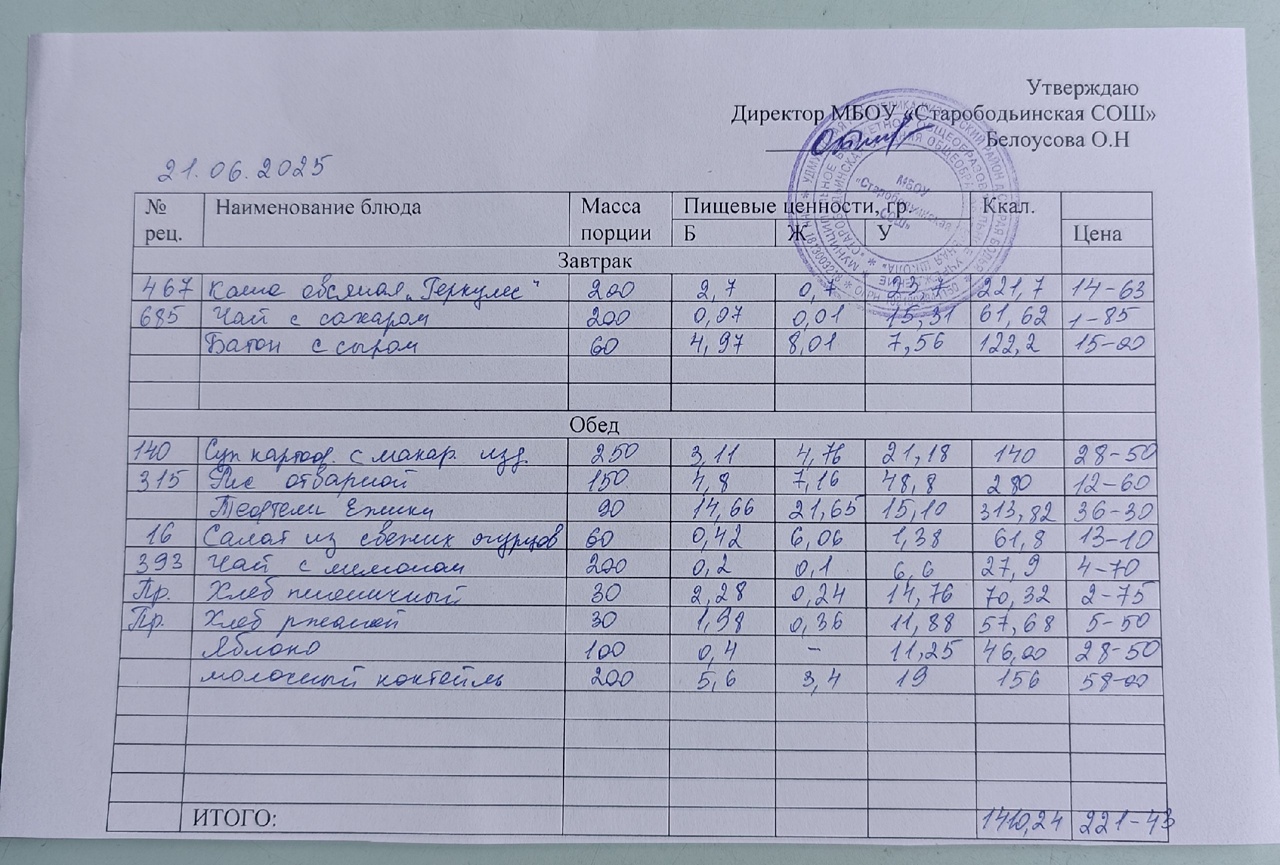 Утверждаю
Директор МБОУ «Старободьинская СОШ»
Белоусова О.Н
21.06.2025
№ рец. Наименование блюда Масса порции Пищевые ценности, гр. Б Ж У Ккал. Цена
Завтрак
467 Каша овсяная „Геркулес“ 200 2,7 0,7 221,7 14-63
685 Чай с сахаром 200 0,07 0,01 15,31 61,62 1-85
Батон с сыром 60 4,97 8,01 7,56 122,2 15-00
Обед
140 Суп картоф. с макар. изд. 250 3,11 4,76 21,18 140 28-50
315 Рис отварной 150 4,8 7,16 48,8 280 12-60
Тефтели Ежики 90 14,66 21,65 15,10 313,82 36-30
16 Салат из свежих огурцов 60 0,42 6,06 1,38 61,8 13-10
393 Чай с лимоном 200 0,2 0,1 6,6 27,9 4-70
Пр. Хлеб пшеничный 30 2,28 0,24 14,76 70,32 2-75
Пр. Хлеб ржаной 30 1,98 0,36 11,88 57,68 5-50
Яблоко 100 0,4 - 11,25 46,00 28-50
молочный коктейль 200 5,6 3,4 19 156 58-00
ИТОГО: 221-43
МБОУ
СОШ»